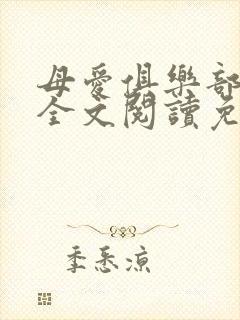 母愛俱樂部
全文閱讀免
季悉涼